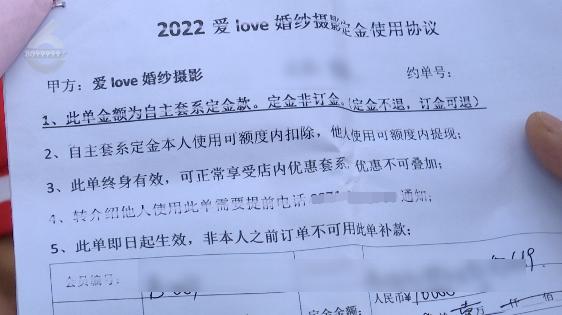 2022 爱 love 婚纱摄影定金使用协议
甲方：爱 love 婚纱摄影 约单号：
1、此单金额为自主套系定金款。定金非订金。（定金不退，订金可退）
2、自主套系定金本人使用可额度内扣除，他人使用可额度内提现；
3、此单终身有效，可正常享受店内优惠套系，优惠不可叠加；
4、转介绍他人使用此单需要提前电话 通知；
5、此单即日起生效，非本人之前订单不可用此单补款；
会员编号：
定金金额：
人民币¥ 10000
万 仟 佰